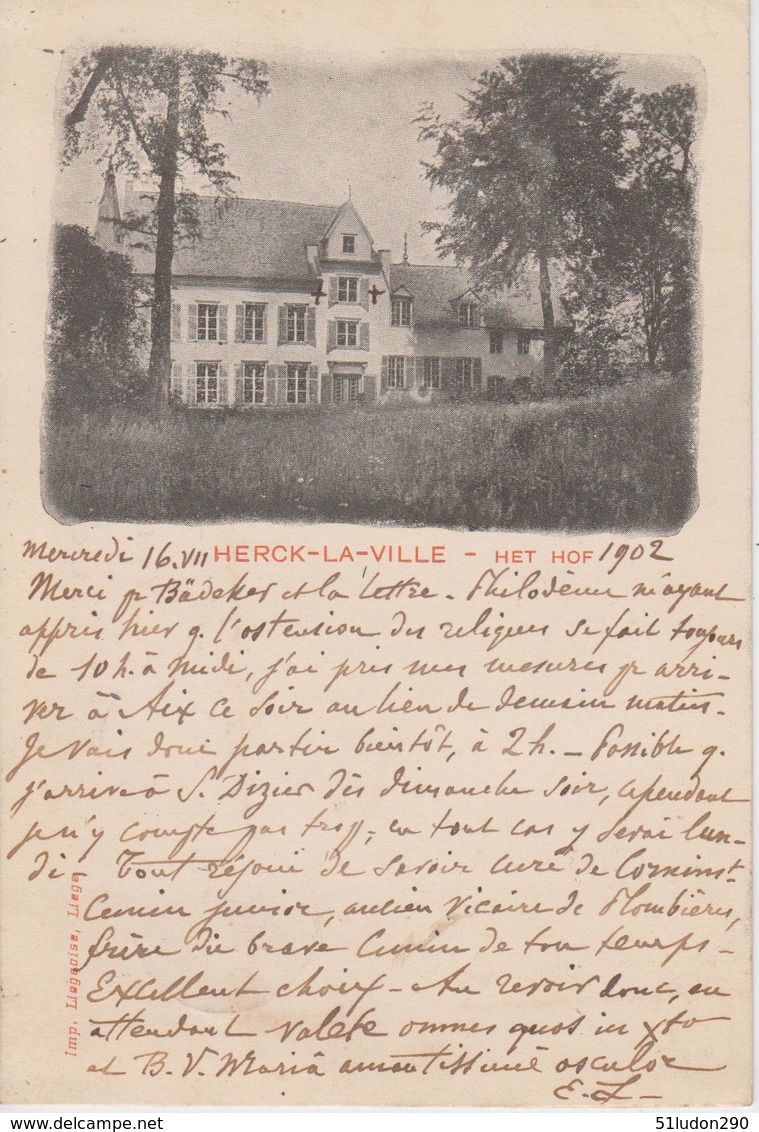 Mercredi 16.VII HERCK-LA-VILLE - HET HOF 1902
Merci pr Bädeker et la lettre. Philodème m'ayant
appris hier q. l'ostension des reliques se fait toujours
de 10 h. à midi, j'ai pris mes mesures pr arri-
ver à Aix ce soir au lieu de demain matin.
Je vais donc partir bientôt, à 2h. _ Possible q.
j'arrive à S. Dizier dès dimanche soir, cependant
je n'y compte pas trop, en tout cas y serai lun-
di. Tout réjoui de savoir curé de
junior, ancien vicaire de Plombières,
frère du brave de ton temps.
Excellent choix. Au revoir donc, en
attendant valete omnes quos in Xto
et B. V. Mariâ amantissimè osculor
E. L.
Imp. Liégeoise, Liége
51ludon290